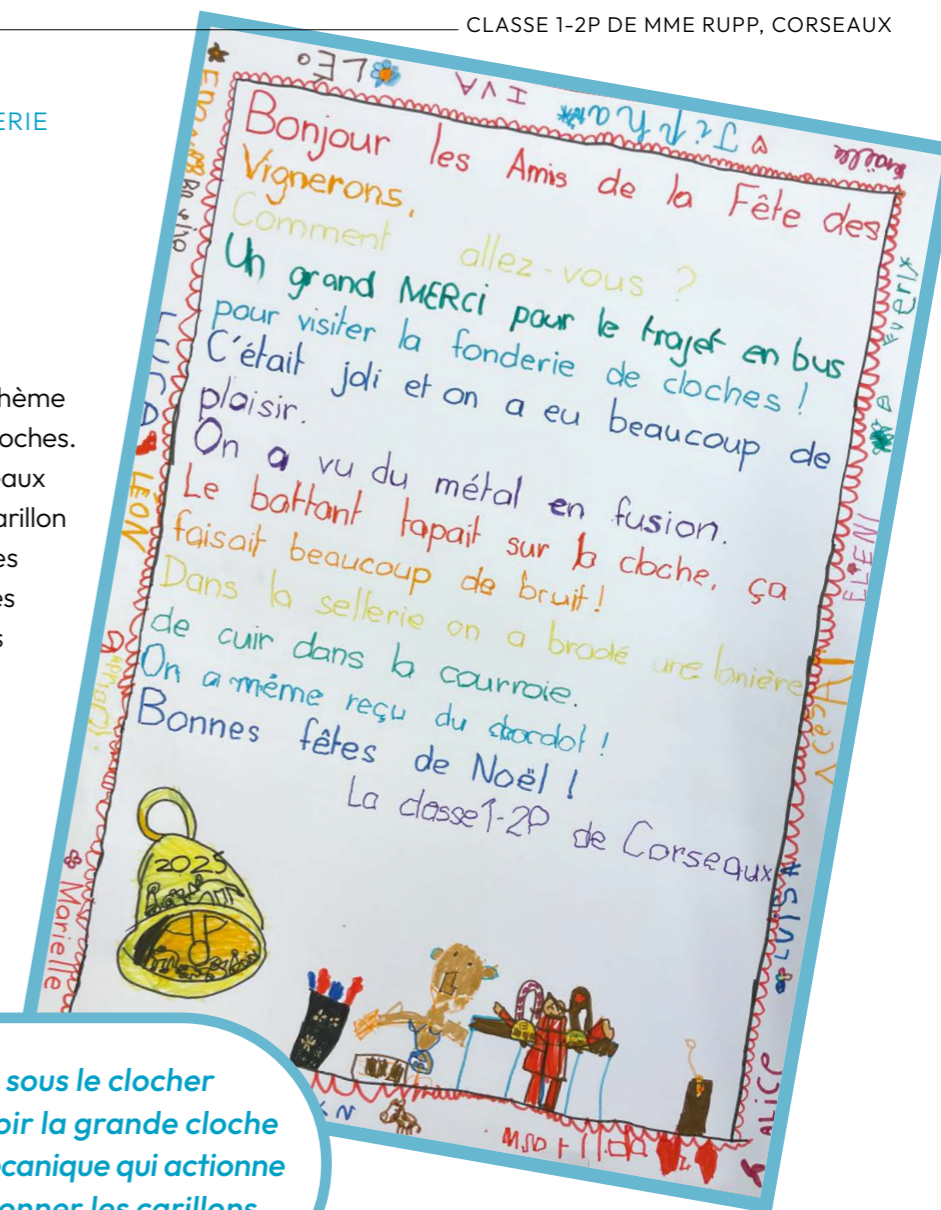 CLASSE 1-2P DE MME RUPP, CORSEAUX
ERIE
hème
oches.
eaux
arillon
es
es
s
LÉO
IVA
Tiphan
Bonjour les Amis de la Fête des
Vignerons,
Comment allez-vous ?
Un grand MERCi pour le trajet en bus
pour visiter la fonderie de cloches !
C'était joli et on a eu beaucoup de
plaisir.
On a vu du métal en fusion.
Le battant tapait sur la cloche, ça
faisait beaucoup de bruit !
Dans la sellerie on a brodé une lanière
de cuir dans la courroie.
On a même reçu du chocolat !
Bonnes fêtes de Noël !
La classe 1-2P de Corseaux
ELENI
LUISA
ALICE
LÉON
Marielle
2025
sous le clocher
oir la grande cloche
écanique qui actionne
onner les carillons